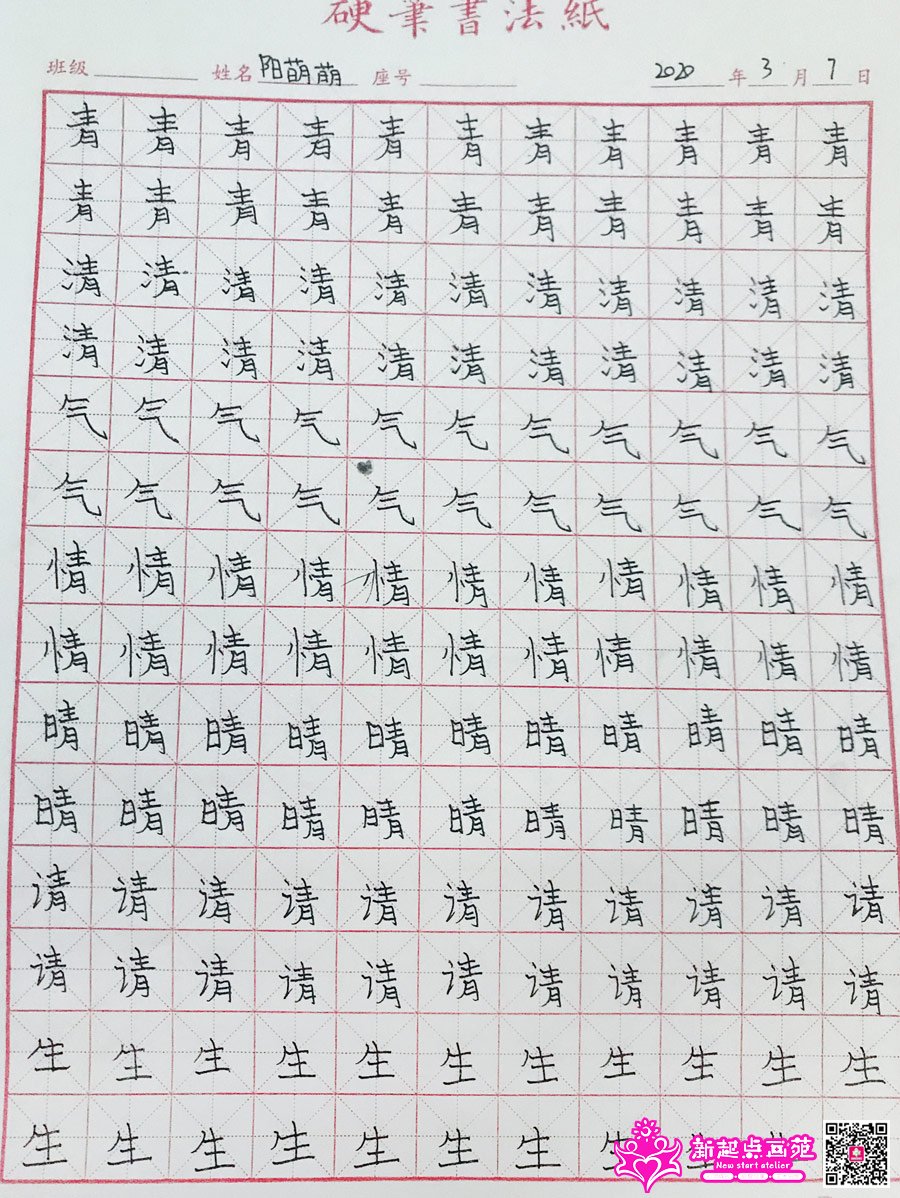 硬筆書法紙
班级 姓名 阳萌萌 座号 2020 年 3 月 7 日
青 青 青 青 青 青 青 青 青 青 青
青 青 青 青 青 青 青 青 青 青 青
清 清 清 清 清 清 清 清 清 清 清
清 清 清 清 清 清 清 清 清 清 清
气 气 气 气 气 气 气 气 气 气 气
气 气 气 气 气 气 气 气 气 气 气
情 情 情 情 情 情 情 情 情 情 情
情 情 情 情 情 情 情 情 情 情 情
晴 晴 晴 晴 晴 晴 晴 晴 晴 晴 晴
晴 晴 晴 晴 晴 晴 晴 晴 晴 晴 晴
请 请 请 请 请 请 请 请 请 请 请
请 请 请 请 请 请 请 请 请 请 请
生 生 生 生 生 生 生 生 生 生 生
生 生 生 生 生 生 生 生 生
新起点画苑
New start atelier